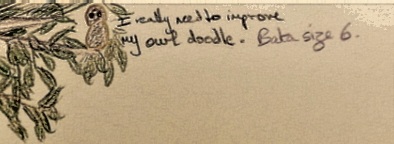 I really need to improve
my owl doodle. Bata size 6.